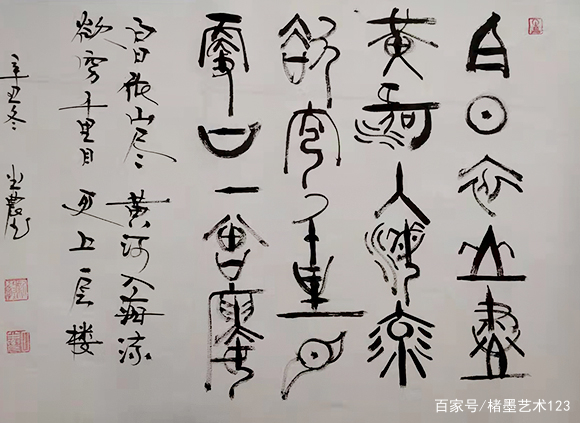 白日依山盡
黃河入海流
欲窮千里目
更上一層樓
白日依山尽 黄河入海流
欲穷千里目 更上一层楼
辛丑冬
百家号/楮墨艺术123